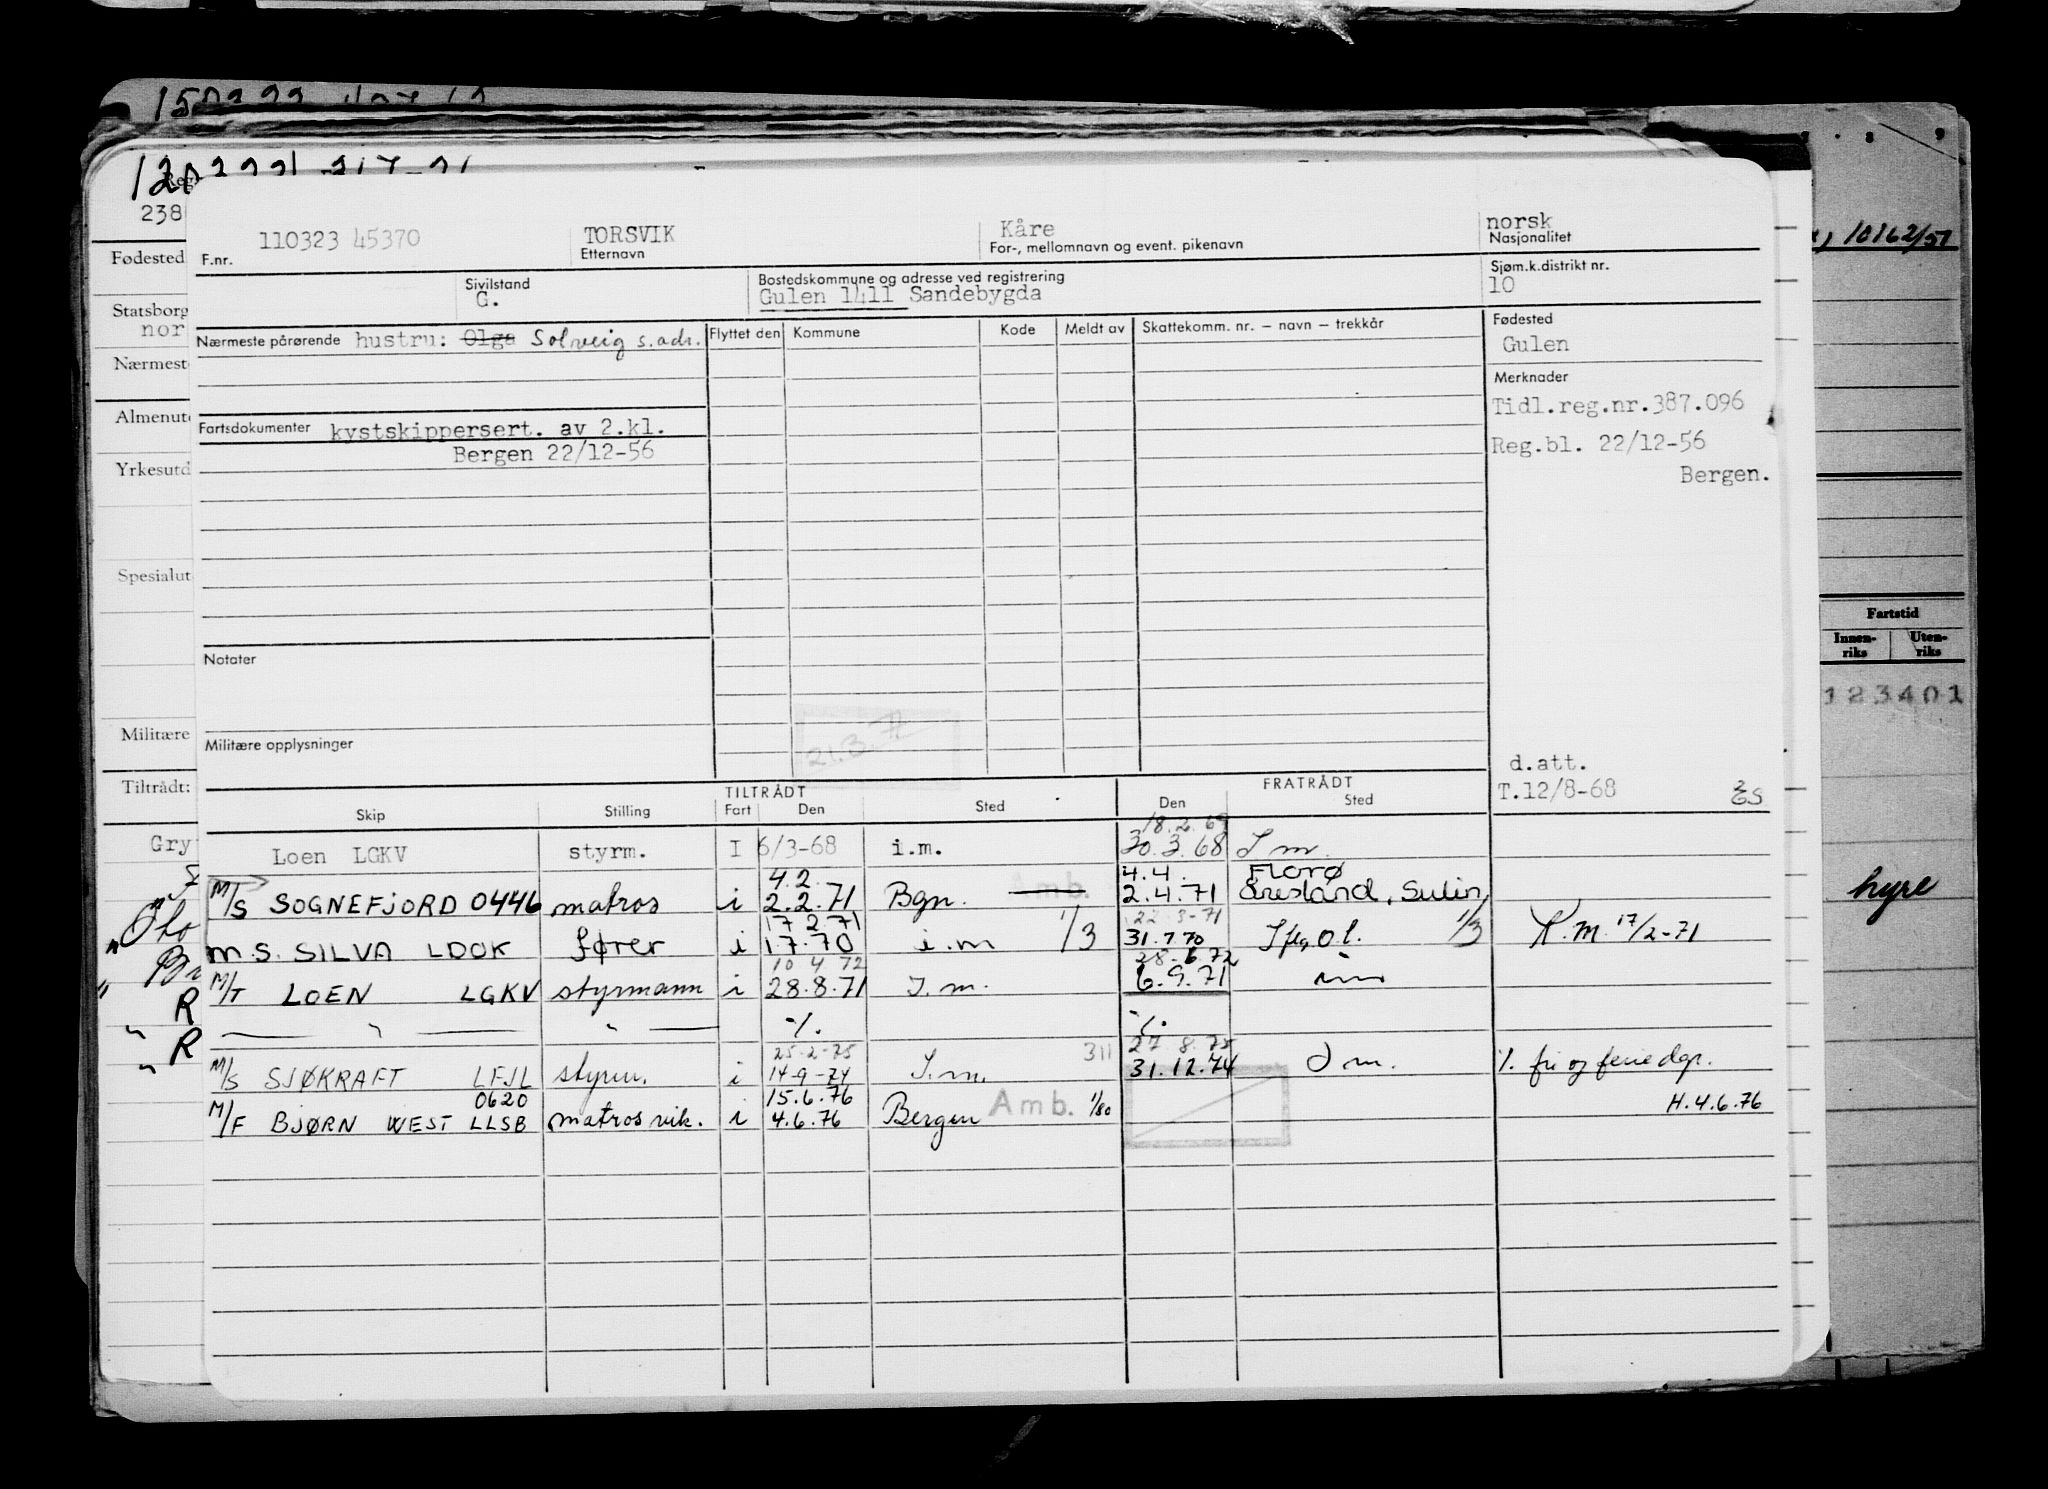 110323 45370 TORSVIK Kåre norsk
F.nr. Etternavn For-, mellomnavn og event. pikenavn Nasjonalitet
Sivilstand Bostedskommune og adresse ved registrering Sjøm.k.distrikt nr.
G. Gulen 1411 Sandebygda 10
Nærmeste pårørende hustru: Olga Solveig s.adr. Flyttet den Kommune Kode Meldt av Skattekomm. nr. – navn – trekkår Fødested
Gulen
Merknader
Tidl.reg.nr.387.096
Fartsdokumenter kystskippersert. av 2.kl.
Bergen 22/12-56
Reg.bl. 22/12-56
Bergen.
Notater
Militære opplysninger
21.3.
d.att.
T.12/8-68
TILTRÅDT FRATRÅDT
Skip Stilling Fart Den Sted Den Sted
18.2.69
Loen LGKV styrm. I 6/3-68 i.m. 30.3.68 I m.
4.2. 4.4. Florø
M/S SOGNEFJORD 0446 matros i 2.2.71 Bgn. Amb. 2.4.71 Sulin
17 2 71 22-3-71
M.S. SILVA LDOK fører i 1.7.70 i.m 1/3 31.7.70 1/3 K.M. 17/2-71
10 4 72 28-6-72
M/T LOEN LGKV styrmann i 28.8.71 I.m. 6.9.71 im
— " — " — ·/. ·/.
25-2-75 311 27 8.75
M/S SJØKRAFT LFJL styrm. i 14-9-74 I.m. 31.12.74 I m. ·/. fri og feriedgr.
0620 15.6.76 H.4.6.76
M/F BJØRN WEST LLSB matros vik. i 4.6.76 Bergen Amb. 1/80
238
Fødested
Statsborg
nor
Nærmest
Almenut
Yrkesutd
Spesialut
Militære
Tiltrådt:
Gry
R
R
10162/51
Fartstid
Innen-riks Uten-riks
123401
hyre